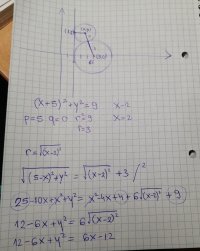 (x+5)²+y²=9 x-2
p=5 q=0 r²=9 x=2
r=3
r=√(x-2)²
√(5-x)²+y² = √(x-2)² +3 /²
25-10x+x²+y² = x²-4x+4+6√(x-2)² +9
12-6x+y² = 6√(x-2)²
12-6x+y² = 6x-12